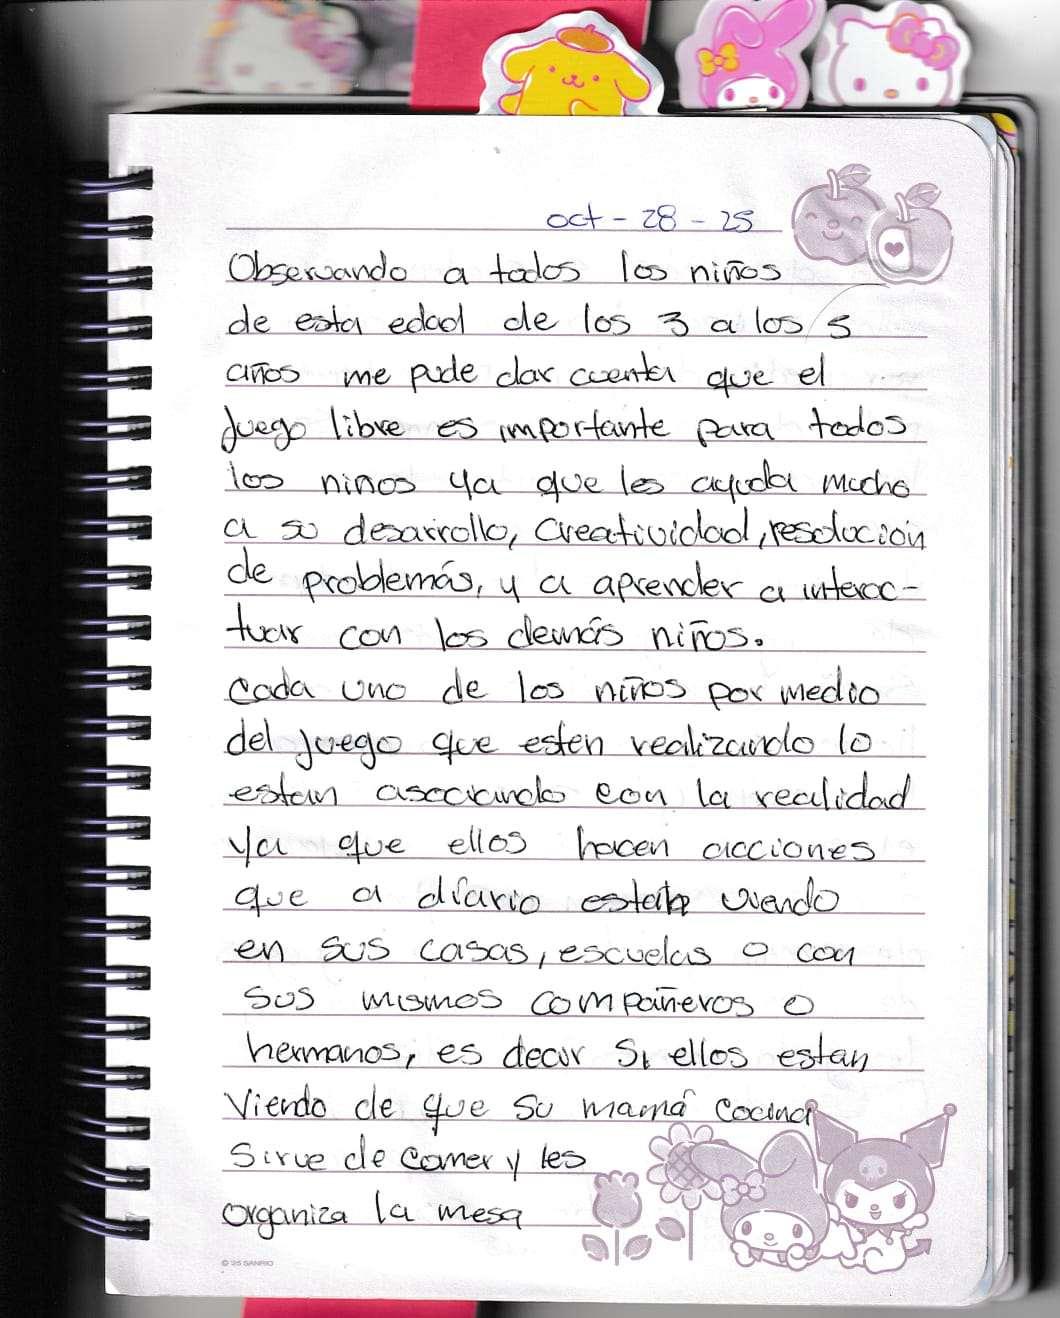 oct - 28 - 25
Observando a todos los niños
de esta edad de los 3 a los 5
años me pude dar cuenta que el
juego libre es importante para todos
los niños ya que les ayuda mucho
a su desarrollo, creatividad, resolución
de problemás, y a aprender a interac-
tuar con los demás niños.
cada uno de los niños por medio
del juego que esten realizando lo
estan asociando con la realidad
ya que ellos hacen acciones
que a díario estan viendo
en sus casas, escuelas o con
sus mismos compañeros o
hermanos, es decir si ellos estan
viendo de que su mamá cocina
sirve de comer y les
organiza la mesa
© '25 SANRIO